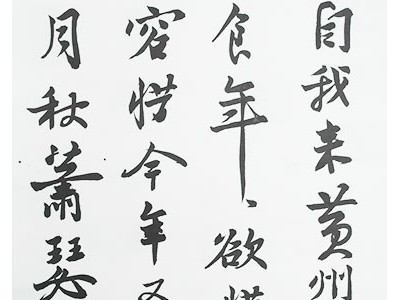 自我来黄州
食年、欲惜
容惜今年又
月秋蕭瑟